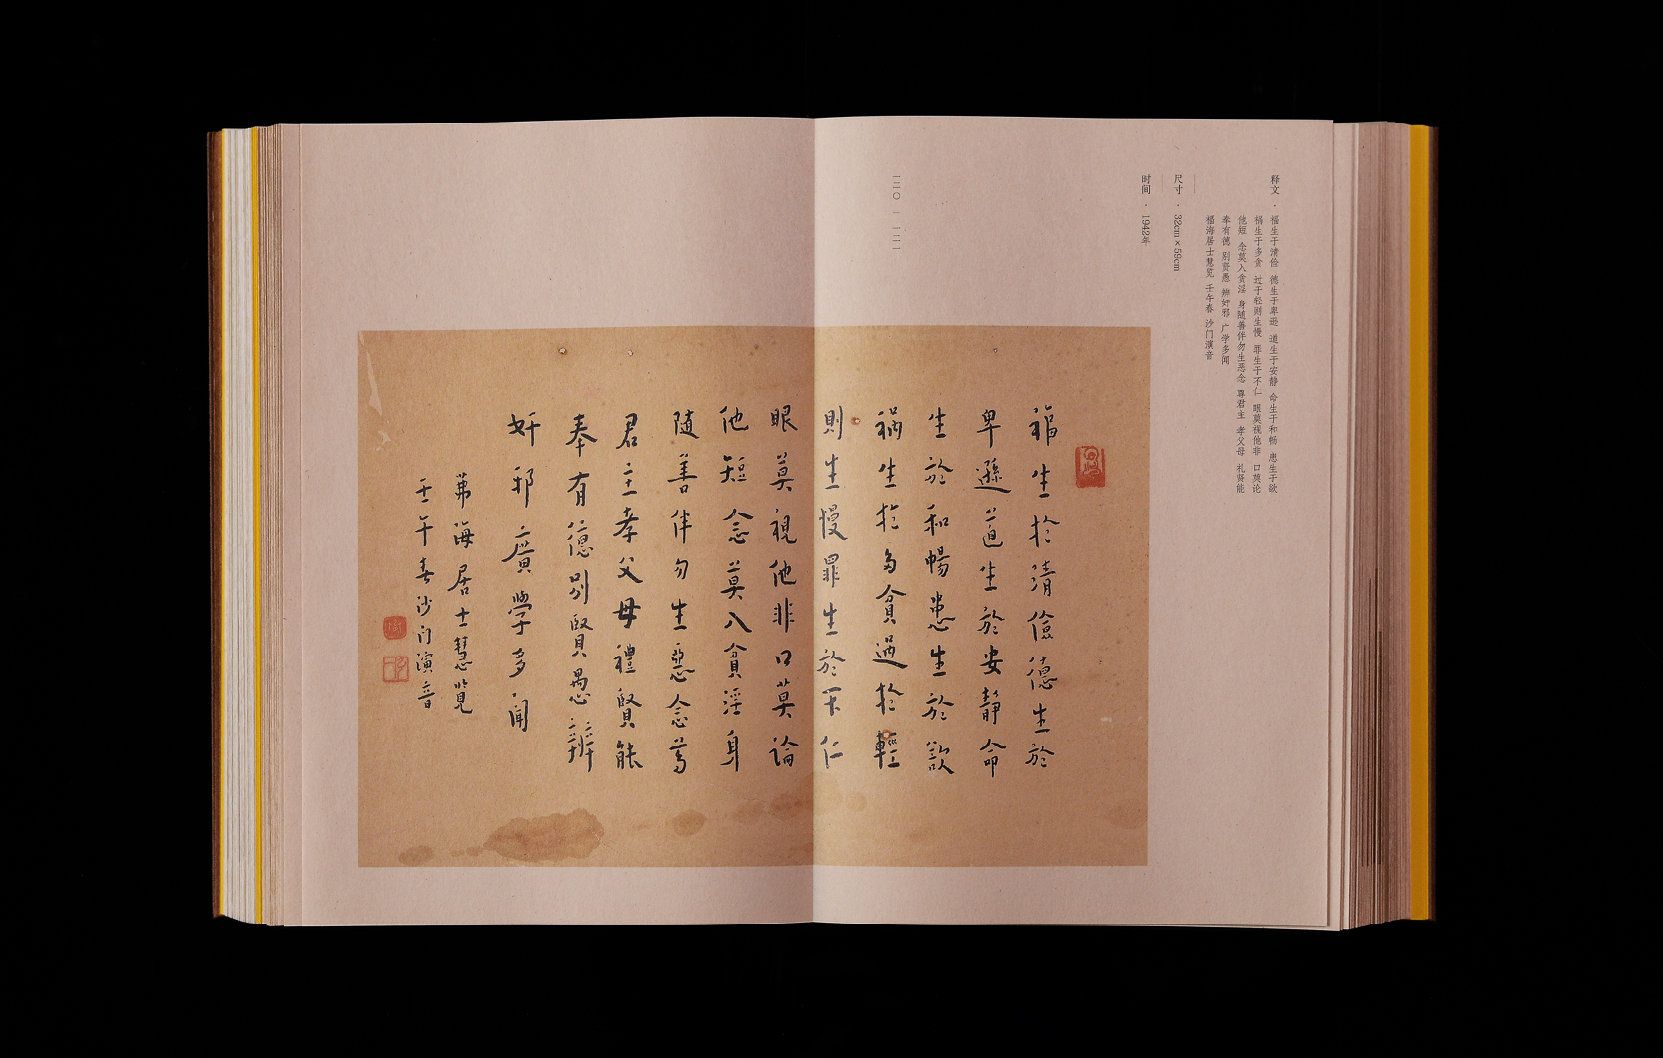 释文 · 福生于清俭 德生于卑逊 道生于安静 命生于和畅 患生于欲
祸生于多贪 过于轻则生慢 罪生于不仁 眼莫视他非 口莫论
他短 念莫入贪淫 身随善伴勿生恶念 尊君主 孝父母 礼贤能
奉有德 别贤愚 辨奸邪 广学多闻
福海居士慧览 壬午春 沙门演音
尺寸 · 32cm×59cm
时间 · 1942年
一二〇 — 一二一
福生於清儉德生於
卑遜道生於安靜命
生於和暢患生於欲
禍生於多貪過於輕
則生慢罪生於不仁
眼莫視他非口莫論
他短念莫入貪淫身
隨善伴勿生惡念尊
君主孝父母禮賢能
奉有德別賢愚辨
奸邪廣學多聞
海居士慧覽
壬午春沙门演音